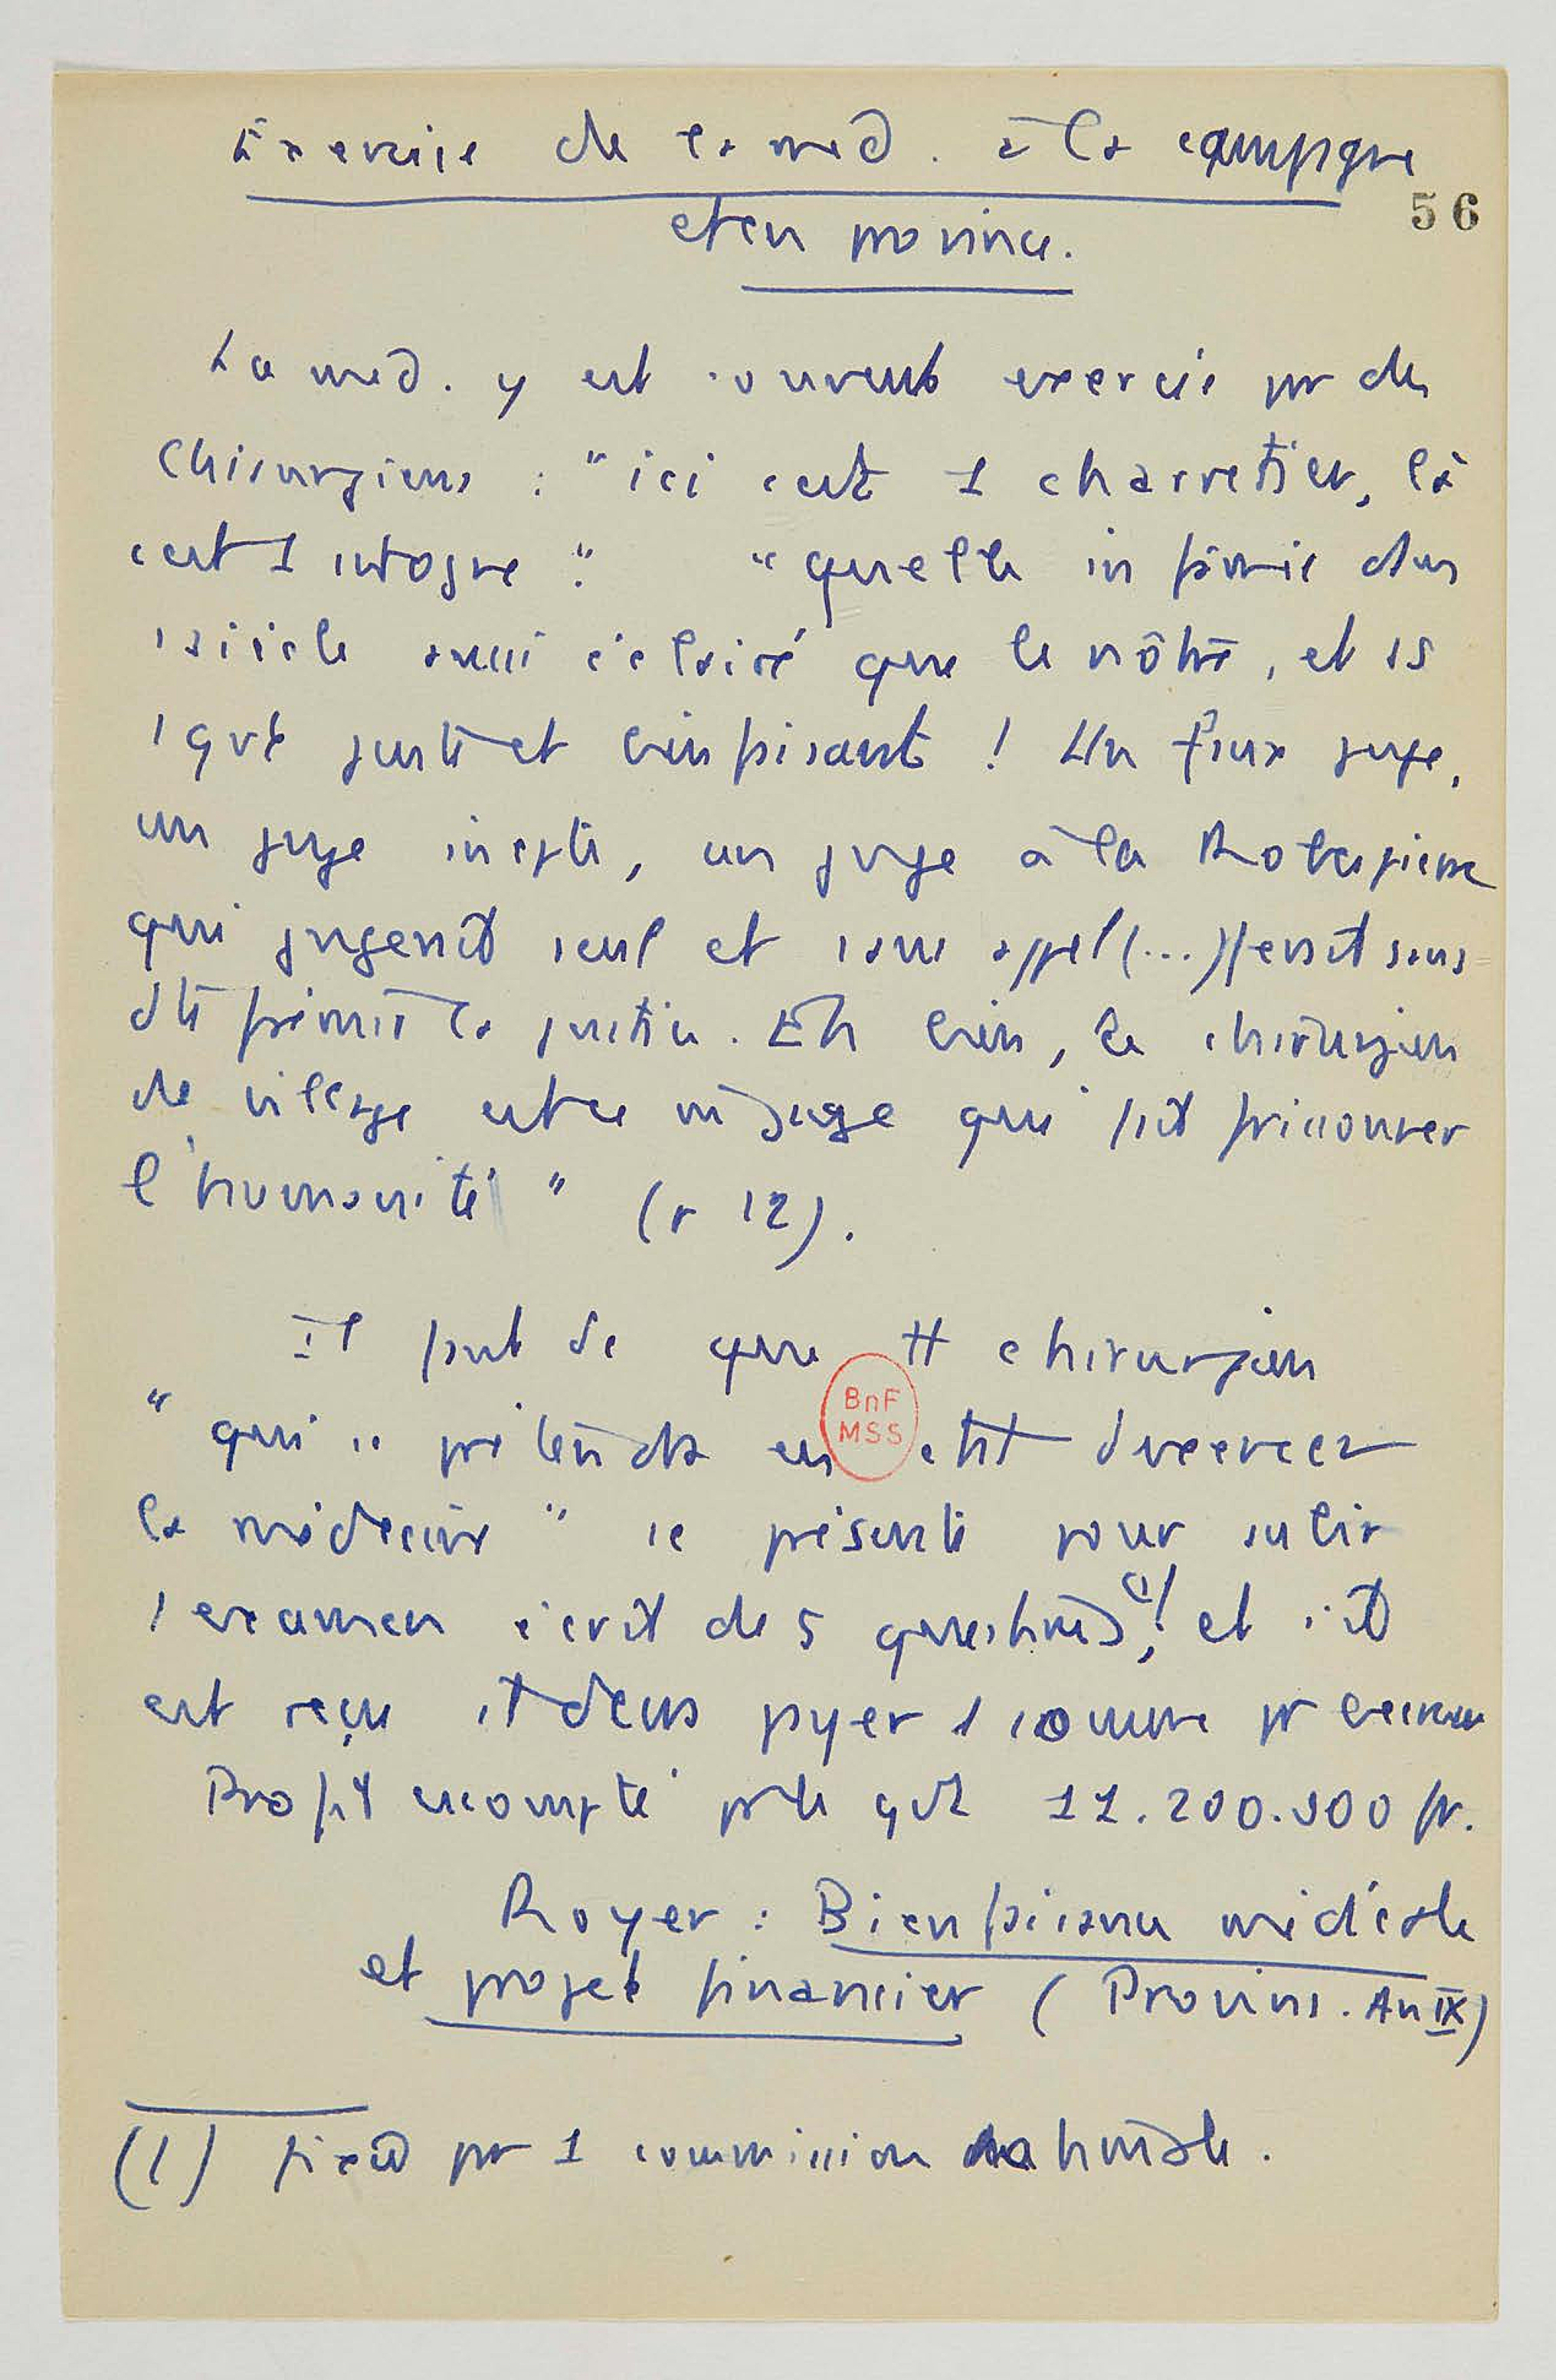 Exercice de la med. à la campagne
56
et en province.
La med. y est souvent exercée par des
chirurgiens : "ici c'est 1 charretier, là
c'est 1 ivrogne". "quelle infâmie dans
1 siècle aussi éclairé que le nôtre, et ss
1 gvt juste et bienfaisant ! Un faux juge,
un juge inepte, un juge à la Robespierre
qui jugerait seul et sans appel (...) ferait sans
dte frémir la justice. Eh bien, le chirurgien
de village est ce juge qui fait frissonner
l'humanité" (p 12).
Il faut que tt chirurgien
"qui se prétendra en état d'exercer
la médecine" se présente pour subir
1 examen écrit de 5 questions (1), et s'il
est reçu il devra payer 1 somme pr
BnF
MSS
Profit escompté pr le gvt 11.200.000 fr.
Royer : Bienfaisance médicale
et projet financier (Provins. An IX)
(1) fixées par 1 commission nationale.